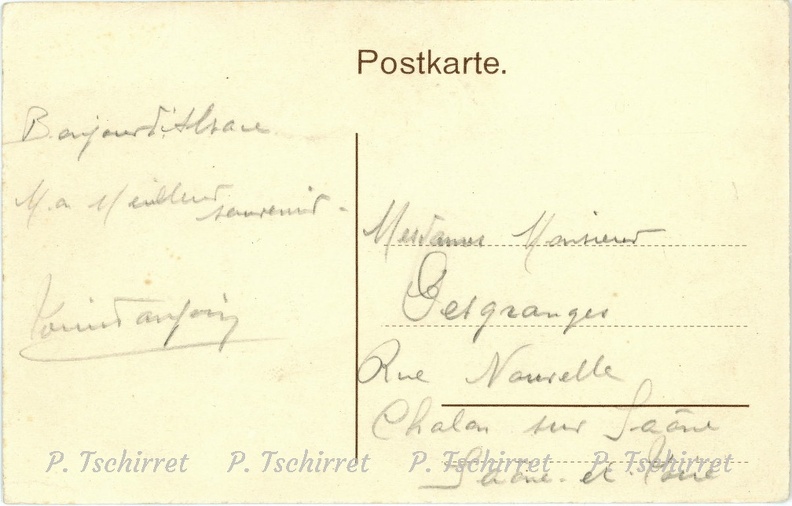 Postkarte.
Bonjour d'Alsace
Meilleur
souvenir -
Mesdames Monsieur
Desgranges
Rue Nouvelle
Chalon sur Saône
Saône et Loire
P. Tschirret P. Tschirret P. Tschirret P. Tschirret